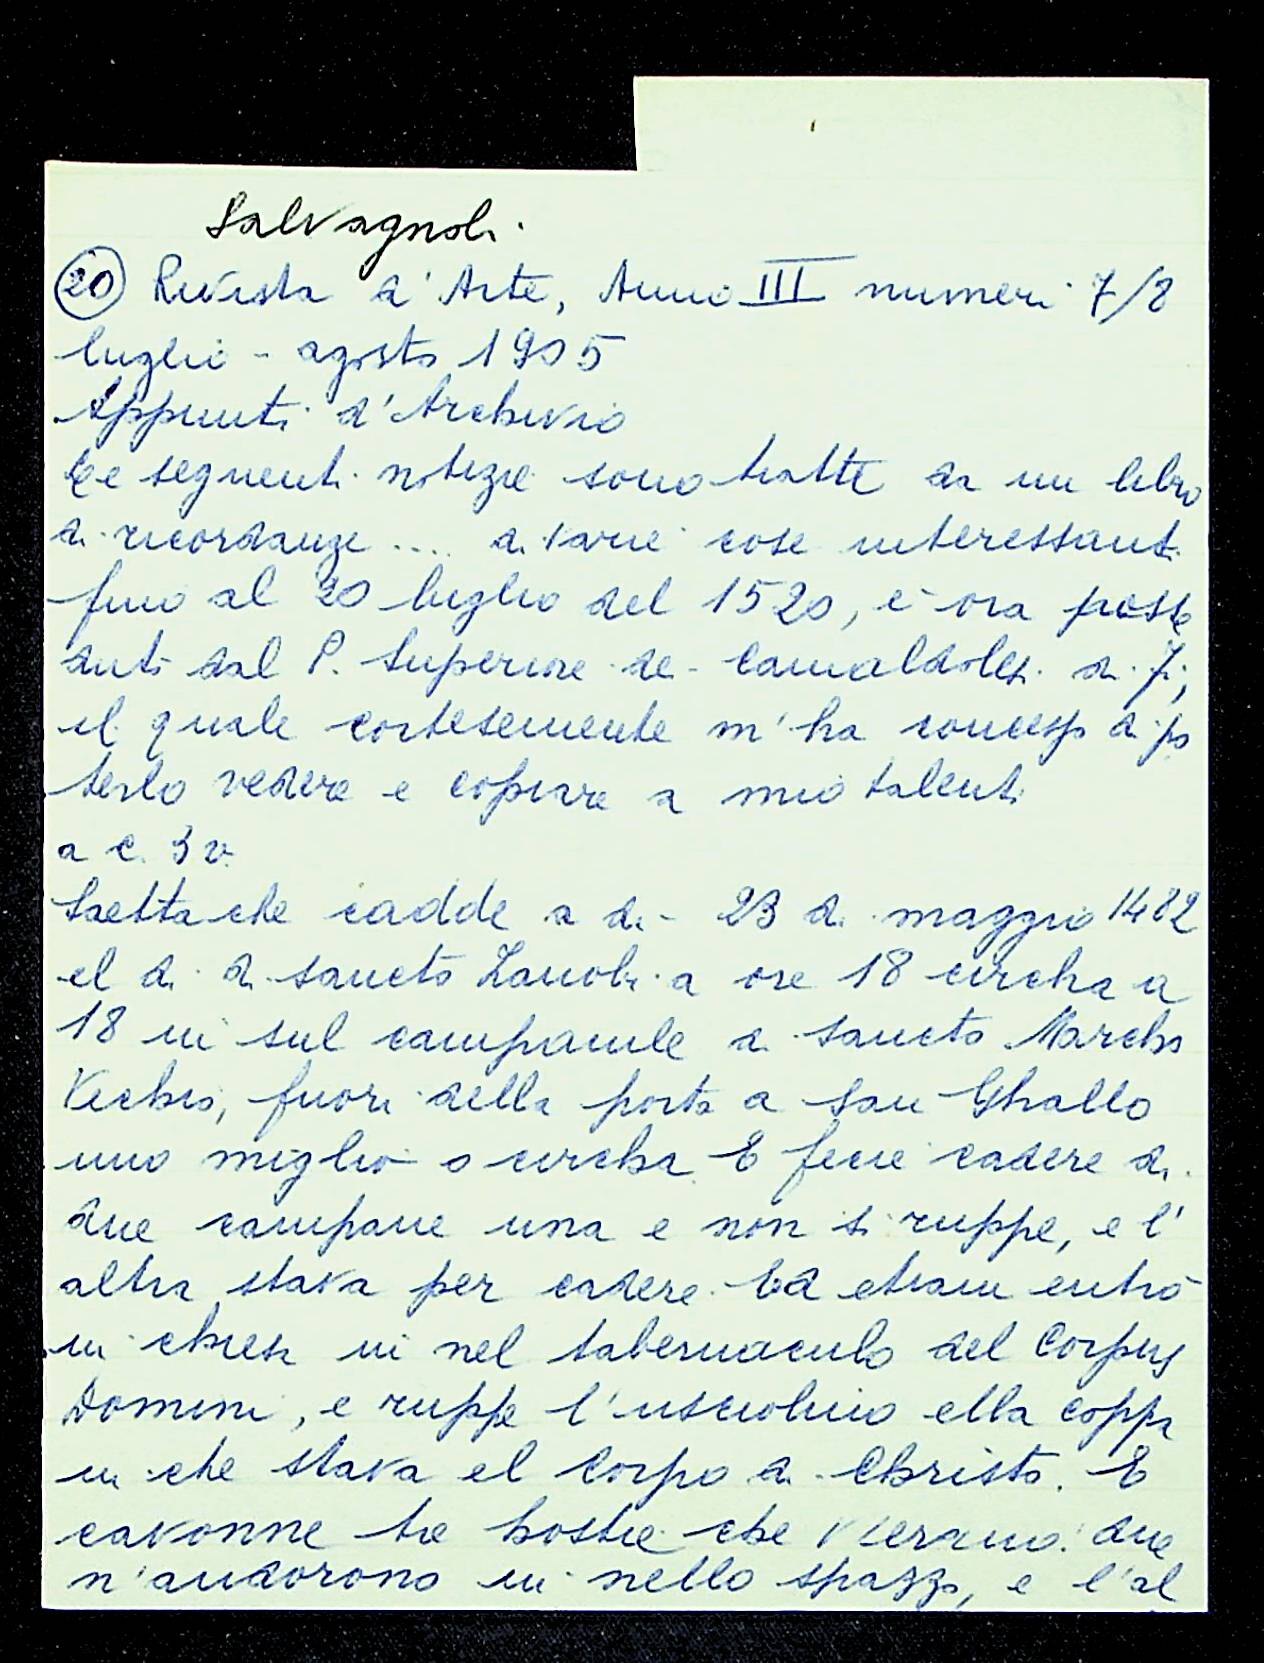 Salvagnoli
20 Rivista d'Arte, Anno III numeri 7/8
luglio - agosto 1905
Appunti d'Archivio
Le seguenti notizie sono tratte da un libro
di ricordanze .... di varie cose interessanti
fino al 20 luglio del 1520, è ora posse
duto dal P. Superiore de' Camaldolesi di
il quale cortesemente m'ha concesso di po
terlo vedere e copiare a mio talento
a c. 3 v.
Saetta che cadde a dì - 23 di maggio 1482
el dì di sancto Zanobi a ore 18 circha a
18 in sul campanile di Sancto Marcho
Vechio, fuori della porta a San Ghallo
uno miglio o circha E fecie cadere di
due campane una e non si ruppe, e l'
altra stava per cadere. Ed etiam entrò
in chiesa in nel tabernaculo del Corpus
Domini, e ruppe l'usciolino ella coppa
in che stava el Corpo di Christo. E
cavonne tre hostie che v'erano: due
n'andorono in nello spazzo, e l'al